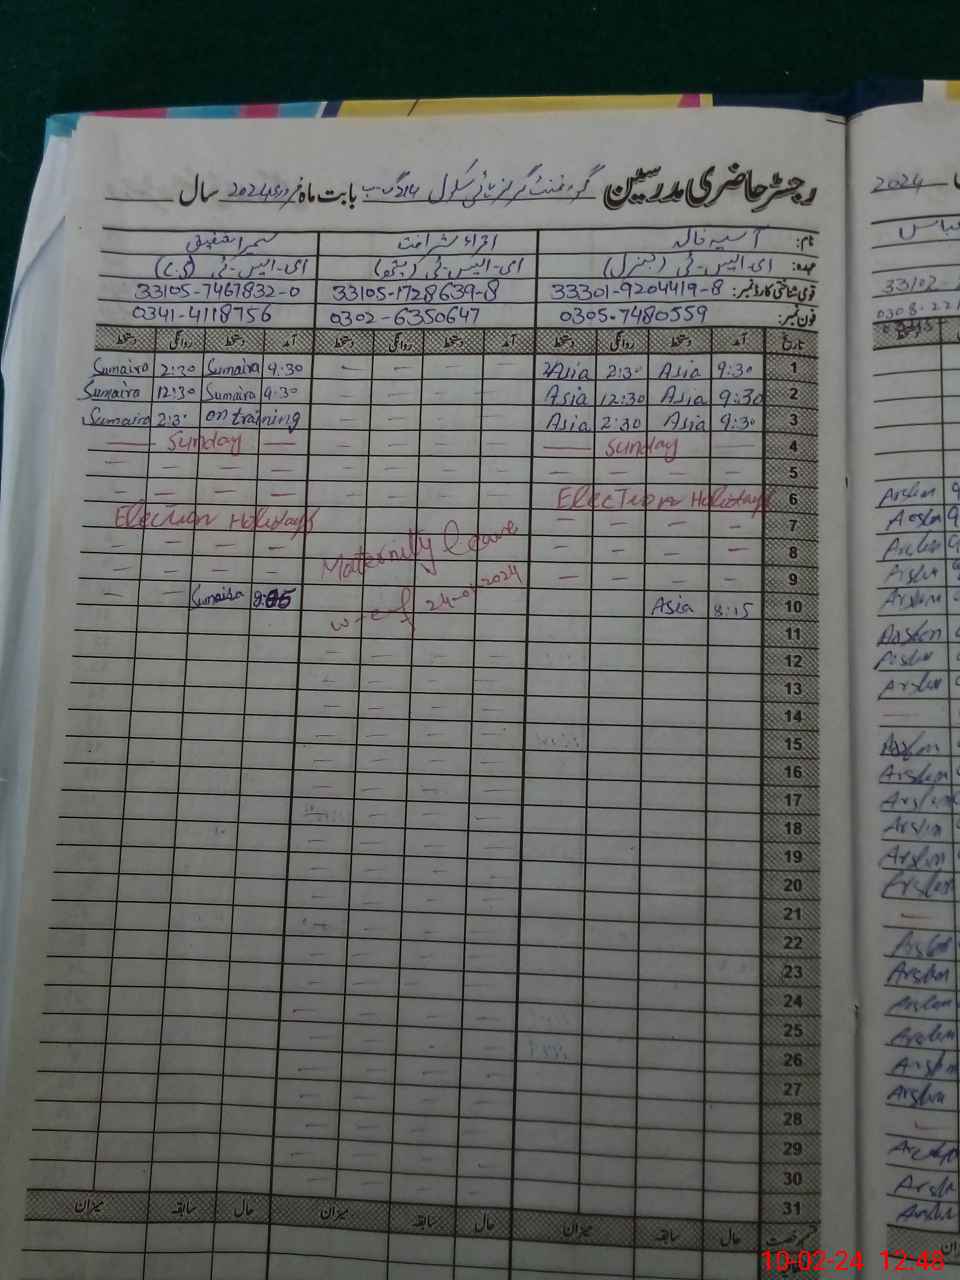 رجسٹر حاضری مدرسین گورنمنٹ گرلز ہائی سکول 214 گ ب بابت ماہ فروری 2024 سال
نام: آسیہ خالد اقراء شرافت سمیرا شفیق
عہدہ: ای-ایس-ئی (جنرل) ای-ایس-ئی ای-ایس-ئی
قومی شناختی کارڈ نمبر: 33301-9204419-8 33105-1728639-8 33105-7467832-0
فون نمبر: 0305-7480559 0302-6350647 0341-4118756
تاریخ آمد دستخط روانگی دستخط آمد دستخط روانگی دستخط آمد دستخط روانگی دستخط
1 9:30 Asia 2:30 Asia — — — — 9:30 Sumaira 2:30 Sumaira
2 9:30 Asia 12:30 Asia — — — — 9:30 Sumaira 12:30 Sumaira
3 9:30 Asia 2:30 Asia — — — — on training 2:30 Sumaira
4 — Sunday — — Sunday —
5
6 Election Holidays
7 Election Holidays
8 Maternity Leave
9 w-e-f 24-01-2024
10 8:15 Asia Sumaira
11
12
13
14
15
16
17
18
19
20
21
22
23
24
25
26
27
28
29
30
31
قسم رخصت حال سابقہ میزان حال سابقہ میزان حال سابقہ میزان
2024
33102-
0308-221
Arslan
Arslan
Arslan
Arslan
Arslan
Arslan
Arslan
Arslan
Arslan
Arslan
Arslan
Arslan
Arslan
Arslan
Arslan
Arslan
Arslan
Arslan
Arslan
Arslan
Arslan
Arslan
Arslan
10-02-24 12:48